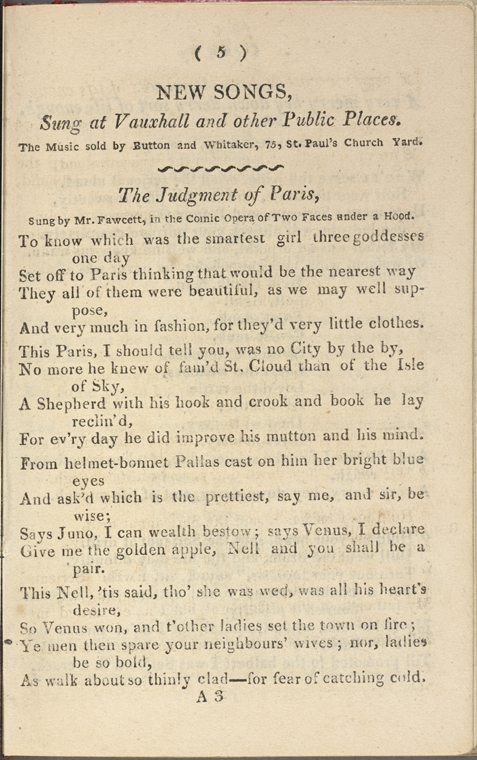 ( 5 )
NEW SONGS,
Sung at Vauxhall and other Public Places.
The Music sold by Button and Whitaker, 75, St. Paul's Church Yard.
The Judgment of Paris,
Sung by Mr. Fawcett, in the Comic Opera of Two Faces under a Hood.
To know which was the smartest girl three goddesses
one day
Set off to Paris thinking that would be the nearest way
They all of them were beautiful, as we may well sup-
pose,
And very much in fashion, for they'd very little clothes.
This Paris, I should tell you, was no City by the by,
No more he knew of fam'd St. Cloud than of the Isle
of Sky,
A Shepherd with his hook and crook and book he lay
reclin'd,
For ev'ry day he did improve his mutton and his mind.
From helmet-bonnet Pallas cast on him her bright blue
eyes
And ask'd which is the prettiest, say me, and sir, be
wise;
Says Juno, I can wealth bestow; says Venus, I declare
Give me the golden apple, Nell and you shall be a
pair.
This Nell, 'tis said, tho' she was wed, was all his heart's
desire,
So Venus won, and t'other ladies set the town on fire;
Ye men then spare your neighbours' wives; nor, ladies
be so bold,
As walk about so thinly clad—for fear of catching cold.
A 3